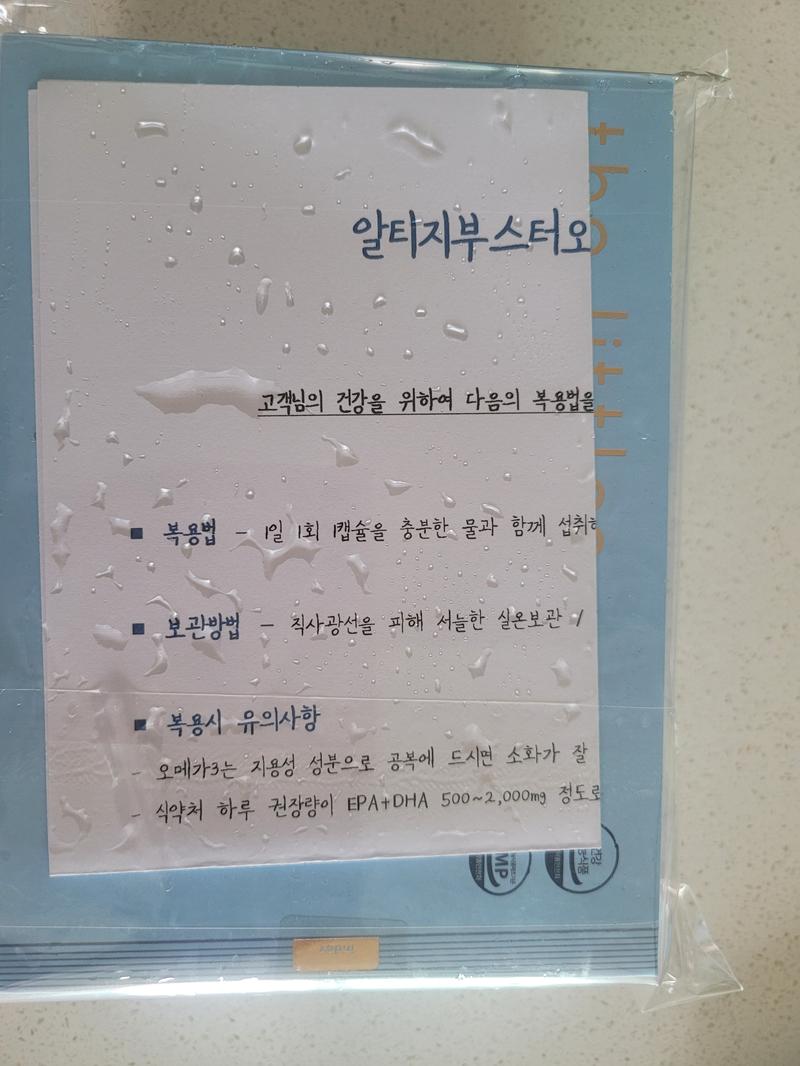 알티지부스터오
고객님의 건강을 위하여 다음의 복용법을
■ 복용법 - 1일 1회 1캡슐을 충분한 물과 함께 섭취하
■ 보관방법 - 직사광선을 피해 서늘한 실온보관 /
■ 복용시 유의사항
- 오메가3는 지용성 성분으로 공복에 드시면 소화가 잘
- 식약처 하루 권장량이 EPA+DHA 500~2,000mg 정도로